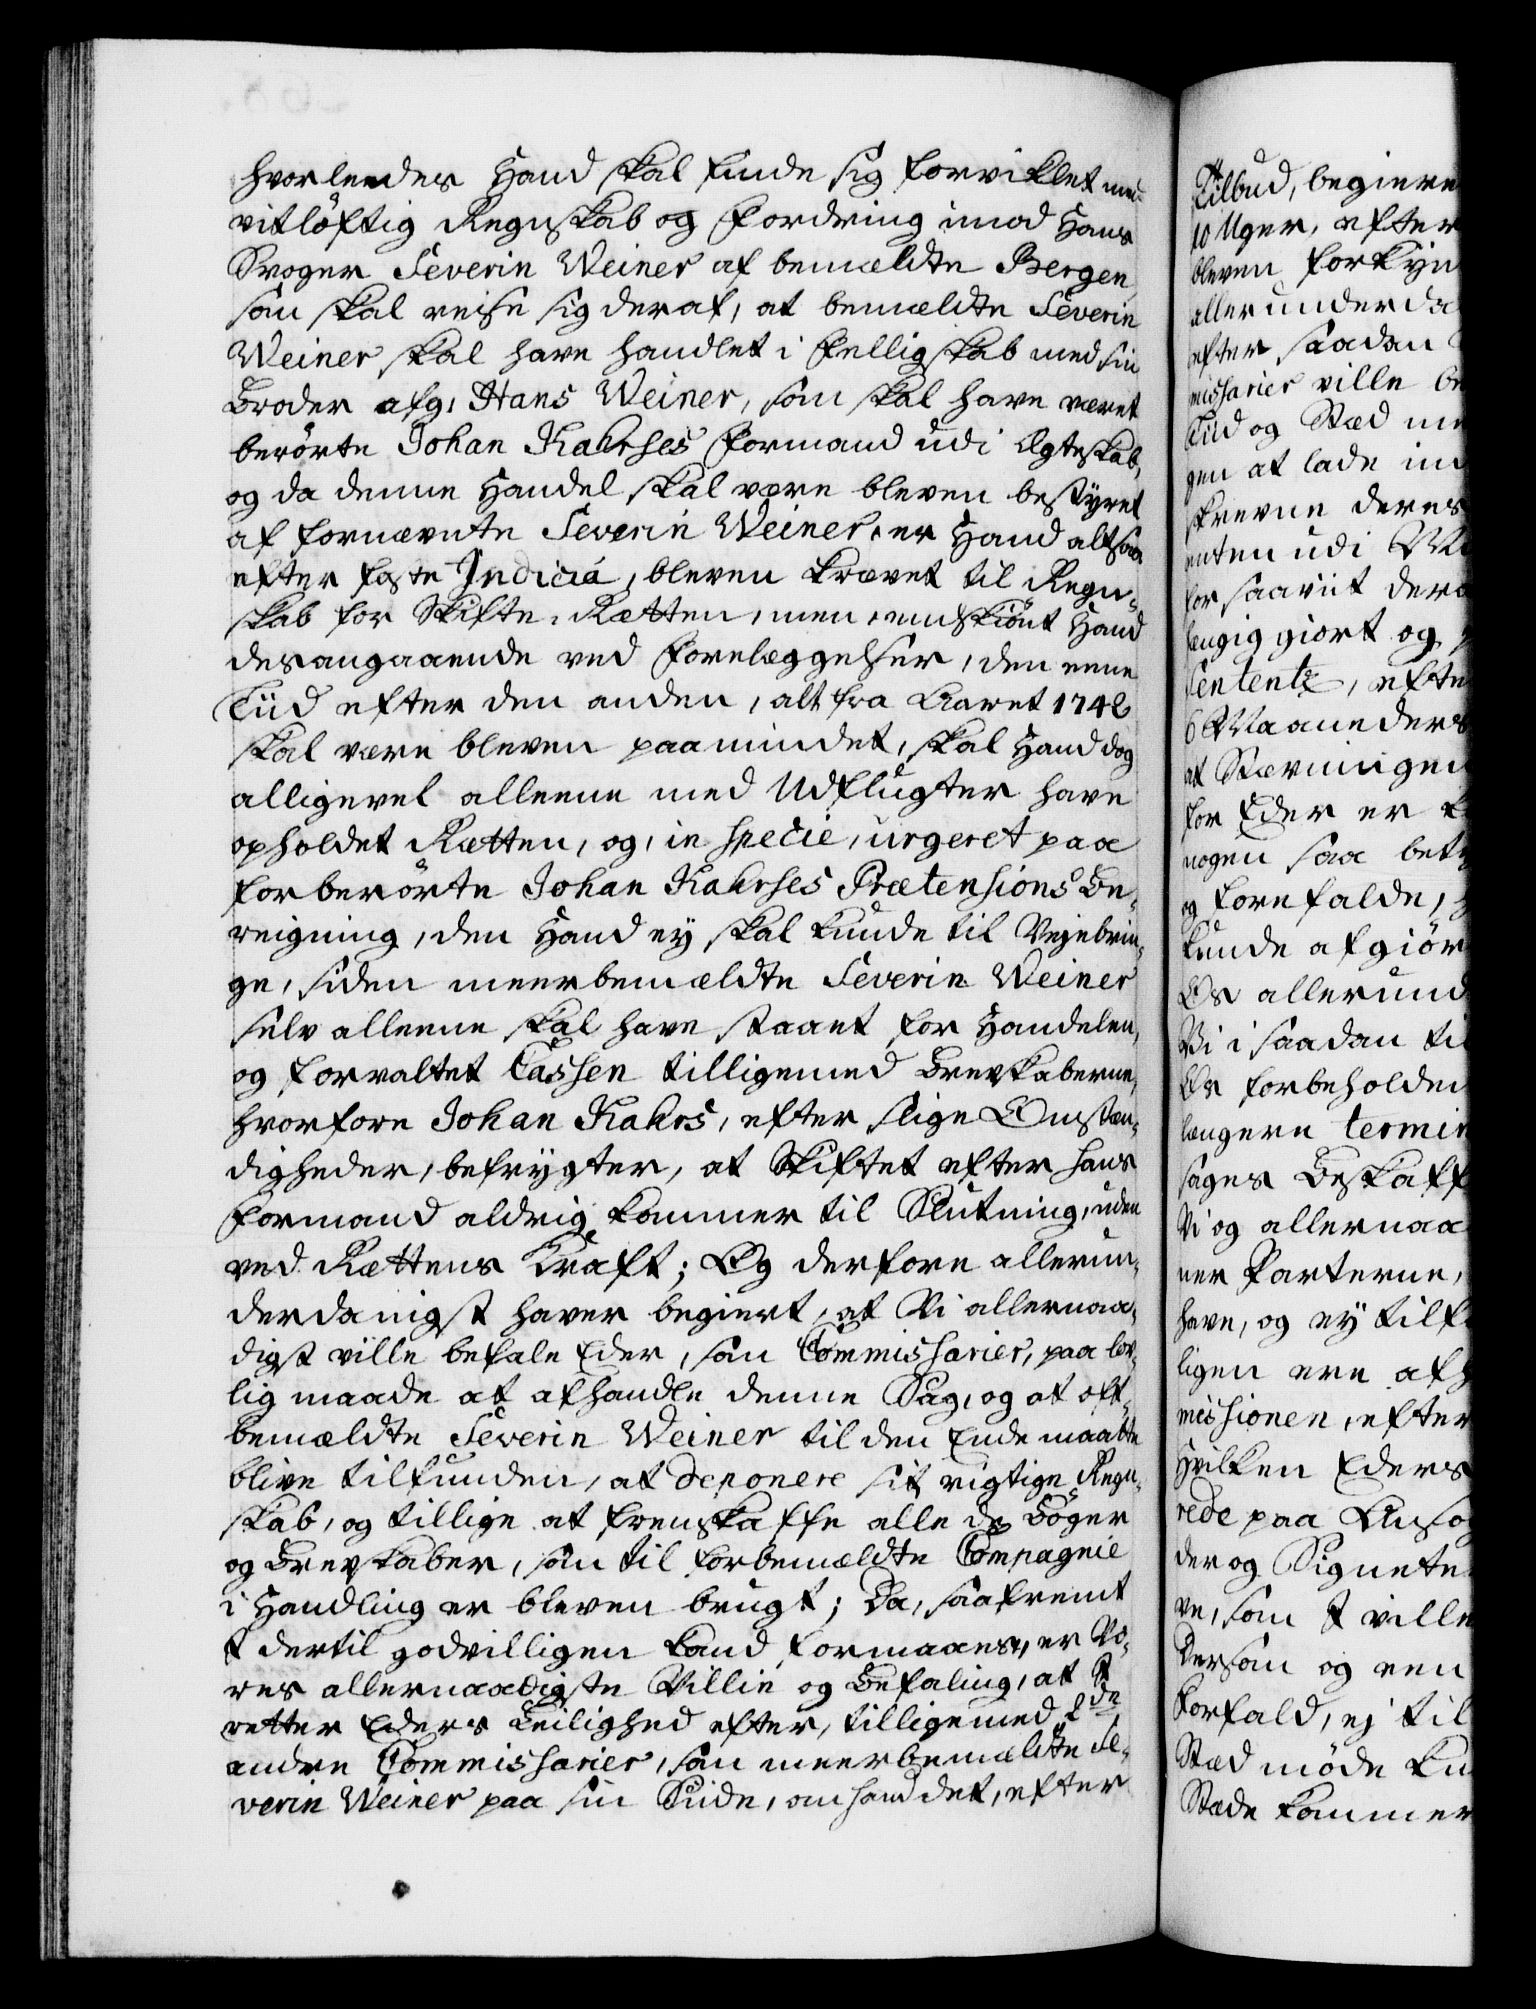 hvorleedes Hand skal finde sig forviklet med
vitløftig Regnskab og Fordring imod Hans
Svoger Severin Weiner af bemældte Bergen
som skal reise sig deraf, at bemældte Severin
Weiner skal have handlet i Fælligskab med sin
Broder afg. Hans Weiner, som skal have været
berørte Johan Kahrses Formand udi Ægteskab,
og da denne Handel skal være bleven bestyret
af fornævnte Severin Weiner, er Hand altsaa
efter faste Indicia, bleven krævet til Regn-
skab for Skifte-Rætten, men, endskiønt Hand
desangaaende ved Forelæggelser, den eene
Tiid efter den anden, alt fra Aaret 1742
skal være bleven paamindet, skal Hand dog
alligevel alleene med Udflugter have
opholdet Rætten, og, in specie, urgeret paa
forberørte Johan Kahrses Prætensions Be-
reigning, den Hand ey skal kunde til Vejebrin-
ge, siden meerbemældte Severin Weiner
selv alleene skal have staaet for Handelen,
og forvaltet Cassen tilligemed Brevskaberne,
hvorfore Johan Kahrs, efter slige Omstæn-
digheder, befrygter, at Skiftet efter hans
Formand aldrig kommer til Slutning, uden
ved Rættens Kraft; Og derfore allerun-
derdanigst haver begiert, at Vi allernaa-
digst ville befale Eder, som Commissarier, paa lov-
lig maade at afhandle denne Sag, og at oft-
bemældte Severin Weiner til den Ende maatte
blive tilfunden, at deponere sit rigtige Regn-
skab, og tillige at fremskaffe alle de Bøger
og Brevskaber, som til forbemældte Compagnie
i Handling er bleven brugt; Da, saafremt
I dertil godvilligen kand formaaes, er Vo-
res allernaadigste Villie og Befaling, at I
retter Eders Leilighed efter, tilligemed 2de
andre Commissarier, som meerbemældte Se-
verin Weiner paa sin Side, om hand det, efter
Tilbud, begiere
10 Uger, efter
bleven forkyn
allerunderda
efter saadan
missarier ville be
Tiid og Stæd
gen at lade
skrevne deres
enten udi
for saaviit
hængig giort og
Sententz, efte
6 Maaneders
at Stævningen
for Eder er
nogen saa
og forefalde,
kunde afgiør
Os allerund
Vi i saadan
Os forbeholden
længere termin
sages Beskaff
Vi og allernaa
ner Parterne,
have, og ey
ligen ere
missionen, efter
Hvilken Eders
rede paa
der og Signete
ve, som I ville
Dersom og een
Forfald, ej til
Stæd møde
Stæde kommer